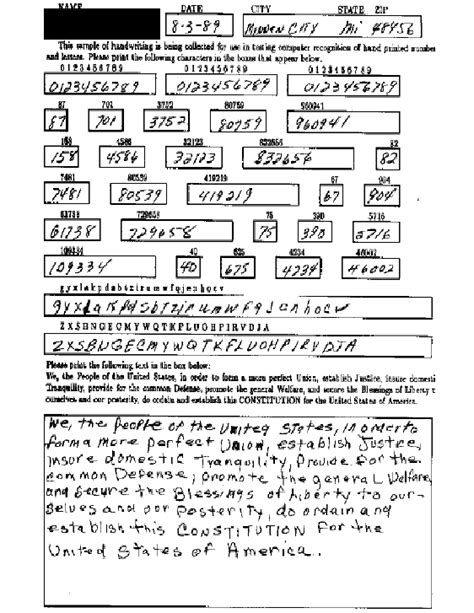 NAME DATE CITY STATE ZIP
8-3-89 MINDEN CITY Mi 48456
This sample of handwriting is being collected for use in testing computer recognition of hand printed numbers
and letters. Please print the following characters in the boxes that appear below.
0123456789 0123456789 0123456789
0123456789 0123456789 0123456789
87 701 3752 80759 960941
87 701 3752 80759 960941
158 4586 32123 832656 82
158 4586 32123 832656 82
7481 80539 419219 67 904
7481 80539 419219 67 904
61738 729658 75 390 5716
61738 729658 75 390 5716
109334 40 625 4234 46002
109334 40 675 4234 46002
gyxlakpdsbtzirumwfqjenhocv
gyxlakpdsbtzirumwfqjenhocv
ZXSBNGECMYWQTKFLUOHPIRVDJA
ZXSBNGECMYWQTKFLUOHPIRVDJA
Please print the following text in the box below:
We, the People of the United States, in order to form a more perfect Union, establish Justice, insure domesti
Tranquility, provide for the common Defense, promote the general Welfare, and secure the Blessings of Liberty t
ourselves and our posterity, do ordain and establish this CONSTITUTION for the United States of America.
We, the People of the United States, in order to
form a more perfect Union, establish Justice,
insure domestic Tranquility, Provide for the
common Defense, promote the general Welfare,
and Secure the Blessings of Liberty to our-
selves and our Posterity, do ordain and
establish this CONSTITUTION for the
United States of America.